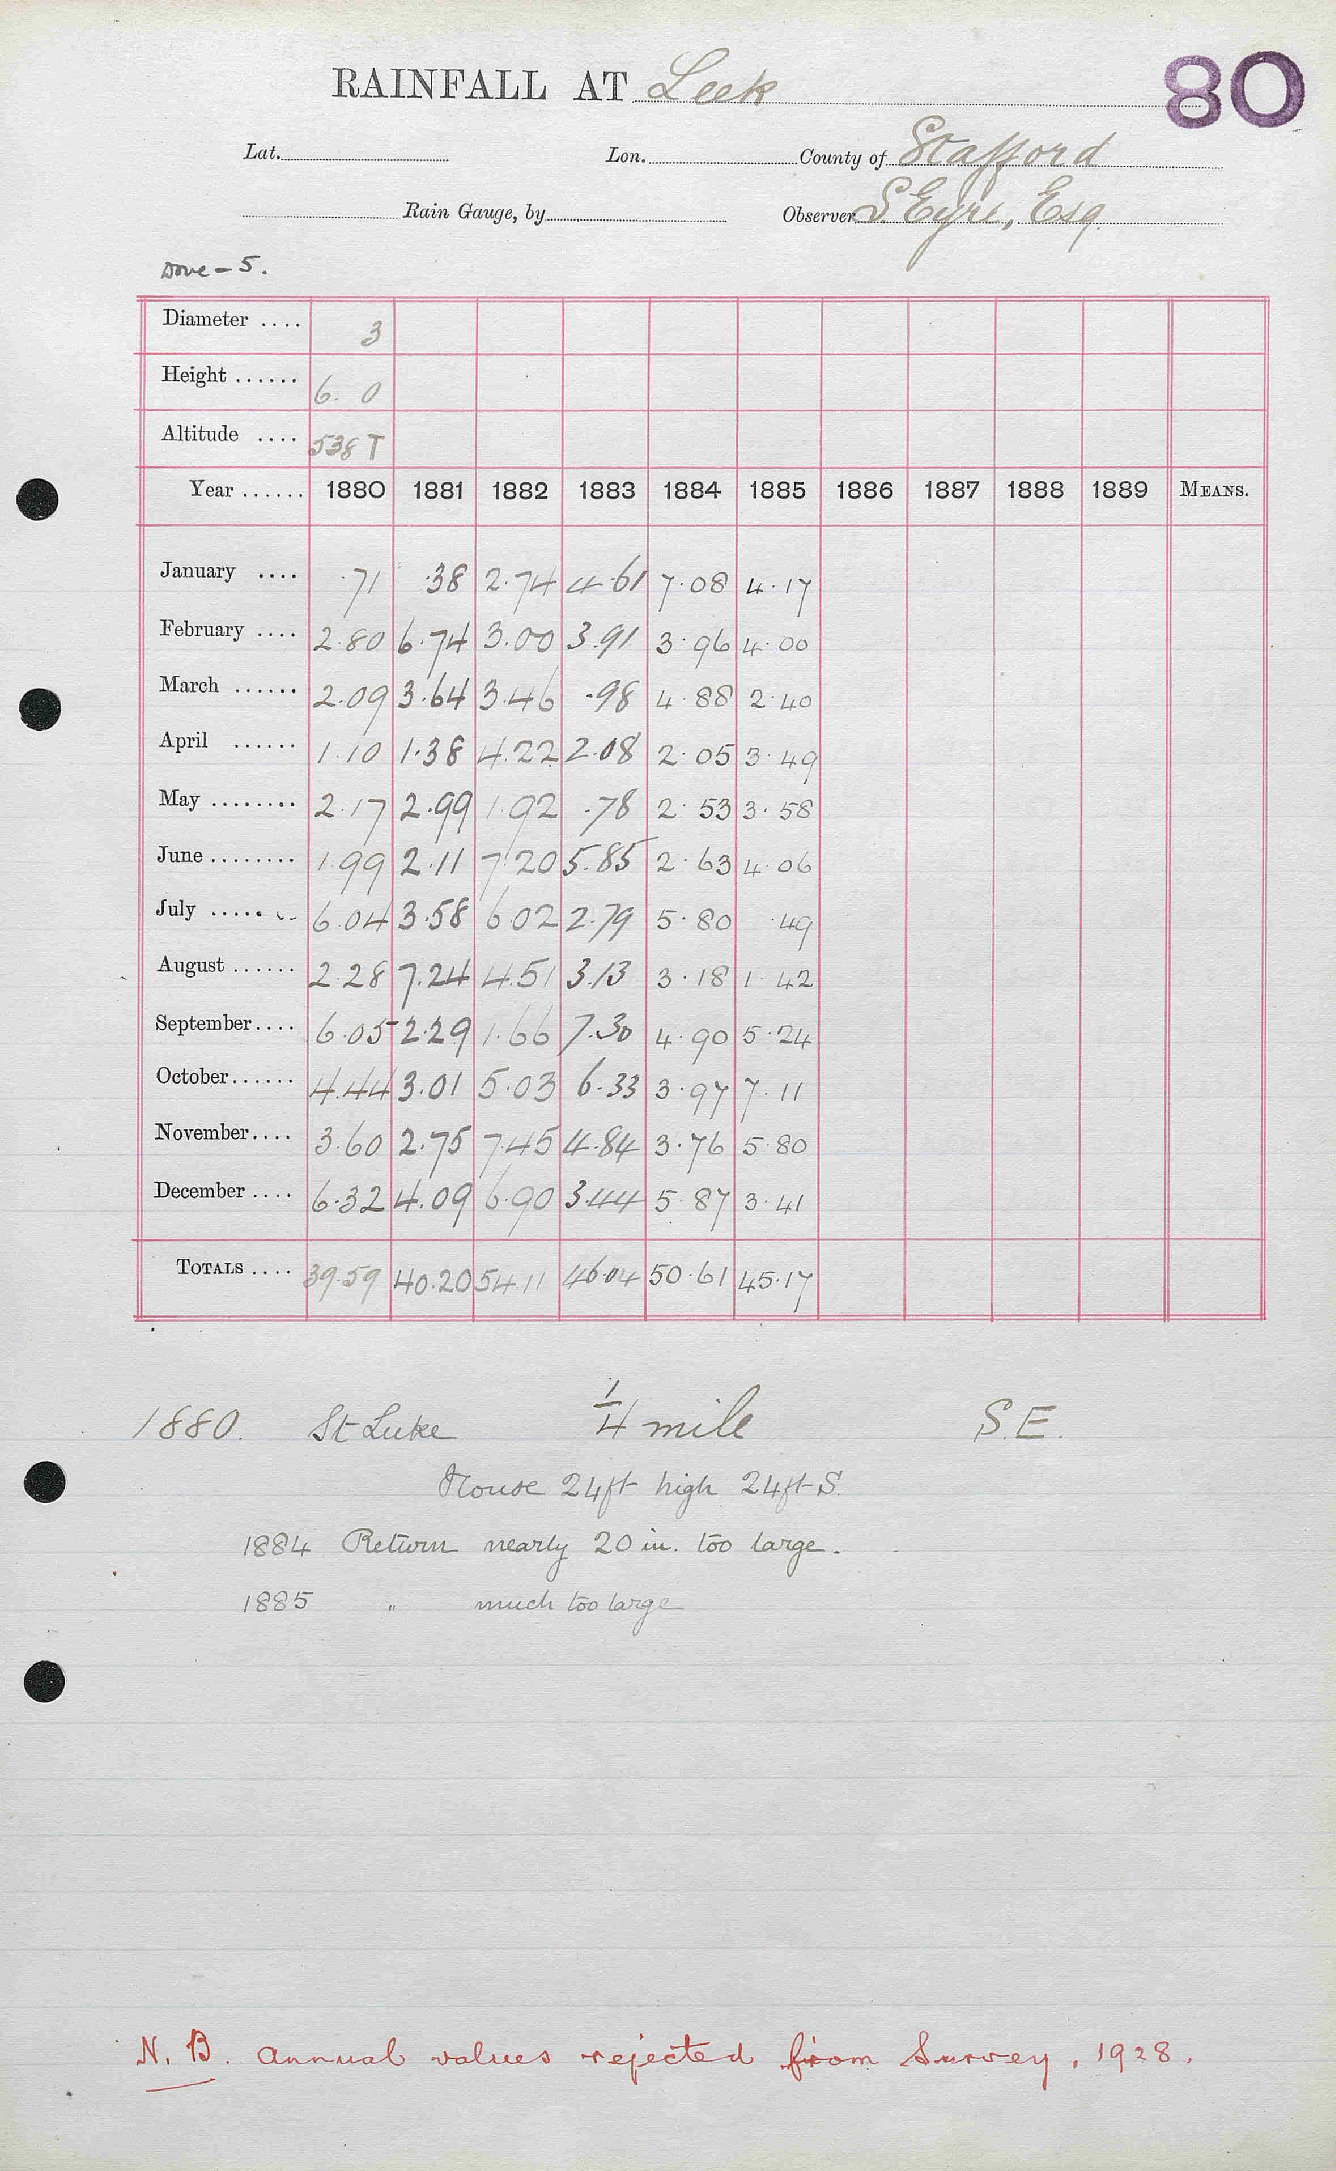 RAINFALL AT Leek
80
Lat. Lon. County of Stafford
Rain Gauge, by Observer S Eyre, Esq.
Dove - 5.
Diameter .... 3
Height ...... 6. 0
Altitude .... 538 T
Year ...... 1880 1881 1882 1883 1884 1885 1886 1887 1888 1889 MEANS.
January .... .71 .38 2.74 4.61 7.08 4.17
February .... 2.80 6.74 3.00 3.91 3.96 4.00
March ...... 2.09 3.64 3.46 .98 4.88 2.40
April ...... 1.10 1.38 4.22 2.08 2.05 3.49
May ........ 2.17 2.99 1.92 .78 2.53 3.58
June ........ 1.99 2.11 7.20 5.85 2.63 4.06
July ....... 6.04 3.58 6.02 2.79 5.80 .49
August ...... 2.28 7.24 4.51 3.13 3.18 1.42
September.... 6.05 2.29 1.66 7.30 4.90 5.24
October...... 4.44 3.01 5.03 6.33 3.97 7.11
November.... 3.60 2.75 7.45 4.84 3.76 5.80
December .... 6.32 4.09 6.90 3.44 5.87 3.41
TOTALS .... 39.59 40.20 54.11 46.04 50.61 45.17
1880. St Luke 1/4 mile S.E.
House 24ft high 24ft S.
1884 Return nearly 20 in. too large.
1885 " much too large
N.B. Annual values rejected from Survey, 1928.